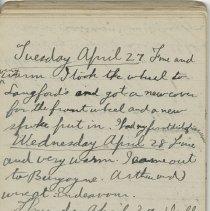 Tuesday April 27 Fine and
warm I took the wheel to
Langford's and got a new cover
for the front wheel and a new
spoke put in.
Wednesday April 28 Fine
and very warm. I came out
to Burgoyne. Arthur and
went
April 29